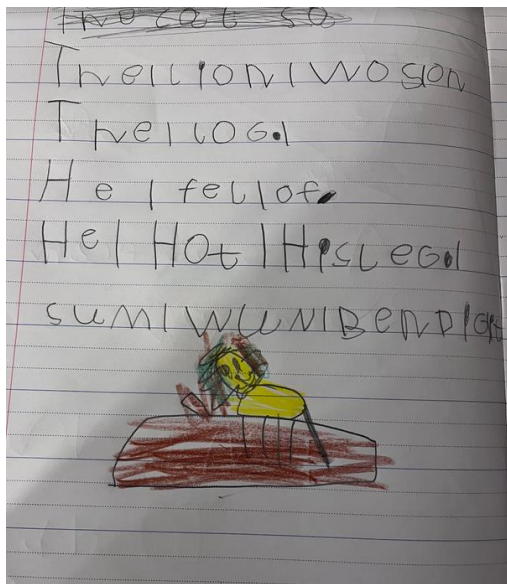 The cat sa
The | lion | wos | on
The | log.|
He | fell | of.
He | Hot | His Leg.|
sum | wun | Bend |